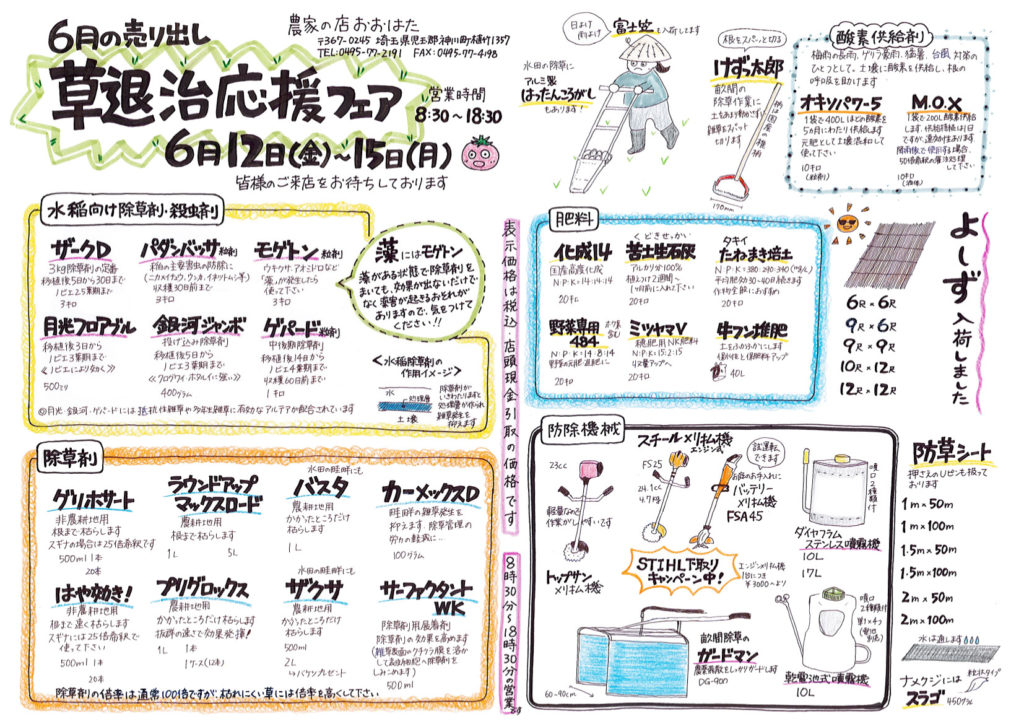 6月の売り出し
草退治応援フェア
6月12日(金)〜15日(月)
皆様のご来店をお待ちしております
農家の店おおはた
〒367-0245 埼玉県児玉郡神川町植竹1357
TEL:0495-77-2191 FAX:0495-77-4198
営業時間
8:30〜18:30
日よけ
雨よけ
富士笠も入荷してます
水田の除草に
アルミ製
はったんころがし
もあります!
根をスパッと切る
けず太郎
畝間の
除草作業に
土をあまり動かさず
雑草をスパット
切ります
柄は国産の椎柄
170mm
酸素供給剤
梅雨の長雨、ゲリラ豪雨、猛暑、台風対策の
ひとつとして。土壌に酸素を供給し、根の
呼吸を助けます
オキソパワー5
1袋で400Lほどの酸素を
5か月にわたり供給します
元肥として土壌混和して
使って下さい
10キロ
(粒剤)
M.O.X
1袋で200L酸素供給
します。供給持続は1日
ですが、速効性あります
降雨後で使用する場合、
50倍希釈の灌注処理
して下さい
10キロ
(液体)
水稲向け除草剤・殺虫剤
ザークD
3kg除草剤の定番
移植後5日から30日まで
ノビエ2.5葉期まで
3キロ
パダンバッサ粒剤
稲の主要害虫の防除に
(ニカメイチュウ、ウンカ、イネットムシ等)
収穫30日前まで
3キロ
モゲトン粒剤
ウキクサ、アオミドロなど
「藻」が発生したら
使って下さい
3キロ
月光フロアブル
移植後3日から
ノビエ3葉期まで
≪ノビエにより効く≫
500ミリ
銀河ジャンボ
投げ込み除草剤
移植後5日から
ノビエ3葉期まで
≪クログワイ・ホタルイに強い≫
400グラム
ゲパード粒剤
中後期除草剤
移植後14日から
ノビエ4葉期まで
収穫60日前まで
1キロ
◎月光・銀河・ゲパードには抵抗性雑草や多年生雑草に有効なアルテアが配合されています
藻にはモゲトン
藻がある状態で除草剤を
まいても、効果が出ないだけで
なく薬害が起きるおそれが
ありますので、気をつけて
ください!!
<水稲除草剤の
作用イメージ>
水
処理層
土壌
除草剤が
いきわたりますと
処理層が作られ
雑草発生を
抑えます
表示価格は税込・店頭現金引取の価格です
8時30分〜18時30分の営業
肥料
化成14
国産高度化成
N・P・K=14・14・14
20キロ
くどきせっかい
苦土生石灰
アルカリ分100%
植えつけ2週間〜
1か月前に入れて下さい
20キロ
タキイ
たねまき培土
N・P・K=380・290・340(mg/L)
平均肥効が30-40日続きます
作物全般におすすめ
20キロ
野菜専用
484
N・P・K=14・8・14
野菜の元肥・追肥に
20キロ
ミツヤマV
穂肥用NK肥料
N・P・K=15・2・15
収量アップへ
20キロ
牛フン堆肥
土をふかふかにします
微生物と保肥料アップ
40L
よしず入荷しました
6尺×6尺
9尺×6尺
9尺×9尺
10尺×12尺
12尺×12尺
除草剤
グリホサート
非農耕地用
根まで枯らします
スギナの場合は25倍希釈です
500ml 1本
20本
ラウンドアップ
マックスロード
農耕地用
根まで枯らします
1L 5L
水田の畦畔にも
バスタ
農耕地用
かかったところだけ
枯らします
1L
カーメックスD
畦畔の雑草発生を
抑えます。除草管理の
労力の軽減に…
100グラム
はや効き!
非農耕地用
根まで速く枯らします
スギナには25倍希釈で
使って下さい
500ml 1本
20本
プリグロックス
農耕地用
かかったところだけ枯らします
抜群の速さで効果発揮!
1L 1本
1ケース(12本)
水田の畦畔にも
ザクサ
農耕地用
かかったところだけ
枯らします
500ml
2L
↳バケツプレゼント
サーファクタント
WK
除草剤用展着剤
除草剤の効果を高めます
(雑草表面のクチクラ膜を溶か
して高齢細胞へ除草剤を
しみこめます)
500ml
除草剤の倍率は通常100倍ですが、枯れにくい草には倍率を高くして下さい
防除機械
23cc
軽量なので
作業がしやすいです
トップサン
メリ木ム機
スチールメリ木ム機
エンジン式
FS25
24.1cc
4.7キロ
試運転
できます
お庭のお手入れに
バッテリー
メリ木ム機
FSA45
STIHL下取り
キャンペーン中!
エンジンメリ木ム機
1台につき
¥3000〜より
畝間除草の
ガードマン
農薬飛散をしっかりガードします
DG-900
60-90cm
噴口
2種類付
ダイヤフラム
ステンレス噴霧機
10L
17L
噴口
2種類付
単1×4コ
(電池別売)
乾電池式噴霧機
10L
防草シート
押さえのUピンも扱って
おります
1m×50m
1m×100m
1.5m×50m
1.5m×100m
2m×50m
2m×100m
水は通します
ナメクジには
粒状タイプ
スラゴ
450グラム